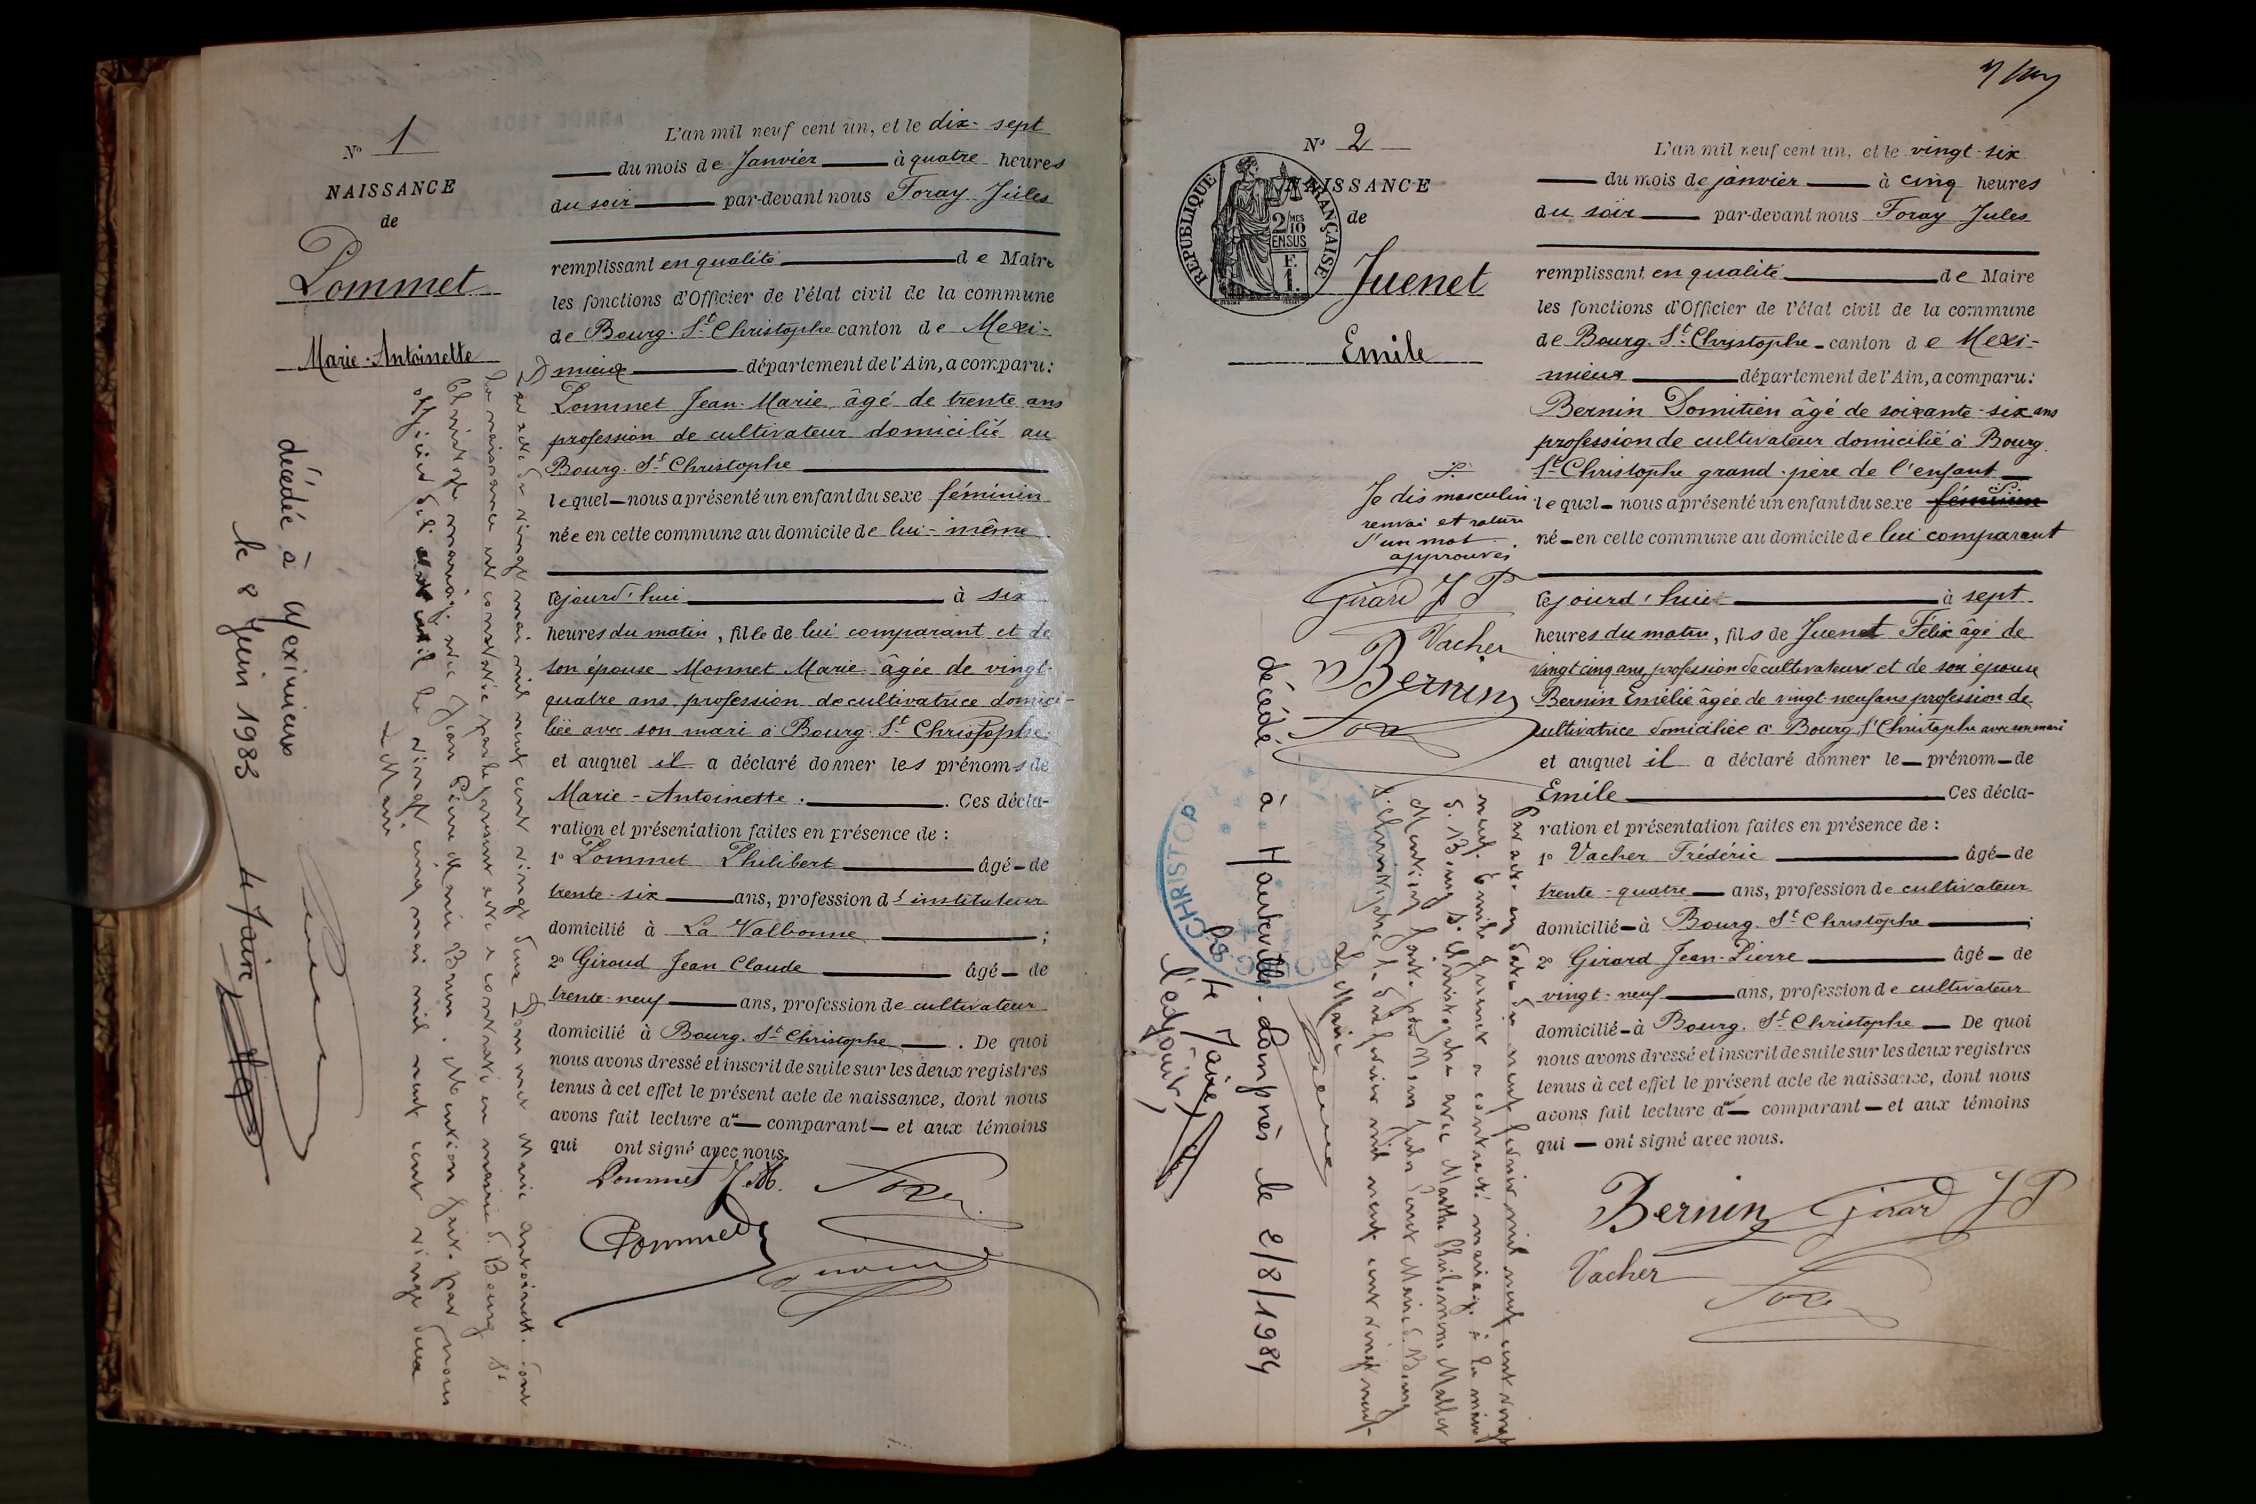 N° 1
NAISSANCE
de
Pommet
Marie-Antoinette
L'an mil neuf cent un, et le dix-sept
du mois de Janvier à quatre heures
du soir par-devant nous Foray Jules
remplissant en qualité de Maire
les fonctions d'Officier de l'état civil de la commune
de Bourg-St-Christophe canton de Mexi-
mieux département de l'Ain, a comparu:
Pommet Jean-Marie, âgé de trente ans
profession de cultivateur domicilié au
Bourg-St-Christophe
lequel nous a présenté un enfant du sexe féminin
née en cette commune au domicile de lui-même
cejourd'hui à six
heures du matin, fille de lui comparant et de
son épouse Monnet Marie âgée de vingt-
quatre ans profession de cultivatrice domici-
liée avec son mari à Bourg-St-Christophe
et auquel il a déclaré donner les prénoms de
Marie-Antoinette. Ces décla-
ration et présentation faites en présence de :
1° Pommet Philibert âgé de
trente-six ans, profession d'instituteur
domicilié à La Valbonne ;
2° Giroud Jean Claude âgé de
trente-neuf ans, profession de cultivateur
domicilié à Bourg-St-Christophe. De quoi
nous avons dressé et inscrit de suite sur les deux registres
tenus à cet effet le présent acte de naissance, dont nous
avons fait lecture au comparant et aux témoins
qui ont signé avec nous.
Pommet J.M.
Pommet
Par acte du vingt mai mil neuf cent vingt deux Pommet Marie Antoinette dont
la naissance est constatée par le présent acte a contracté en mairie de Bourg St
Christophe mariage avec Jean Pierre Aimé Brun. Mention faite par nous
officier de l'état civil le vingt cinq mai mil neuf cent vingt deux
Le Maire
décédée à Meximieux
le 8 Juin 1983
Le Maire
N° 2
NAISSANCE
de
Juenet
Emile
REPUBLIQUE FRANÇAISE
2/10 MES
EN SUS
F.
1.
L'an mil neuf cent un, et le vingt-six
du mois de janvier à cinq heures
du soir par-devant nous Foray Jules
remplissant en qualité de Maire
les fonctions d'Officier de l'état civil de la commune
de Bourg-St-Christophe canton de Mexi-
mieux département de l'Ain, a comparu:
Bernin Domitien âgé de soixante-six ans
profession de cultivateur domicilié à Bourg
St-Christophe grand-père de l'enfant
lequel nous a présenté un enfant du sexe féminin
né en cette commune au domicile de lui comparant
cejourd'hui à sept
heures du matin, fils de Juenet Félix âgé de
vingt cinq ans, profession de cultivateur et de son épouse
Bernin Emélie âgée de vingt neuf ans profession de
cultivatrice domiciliée à Bourg St Christophe avec son mari
et auquel il a déclaré donner le prénom de
Emile Ces décla-
ration et présentation faites en présence de :
1° Vacher Frédéric âgé de
trente-quatre ans, profession de cultivateur
domicilié à Bourg-St-Christophe ;
2° Girard Jean-Pierre âgé de
vingt-neuf ans, profession de cultivateur
domicilié à Bourg-St-Christophe De quoi
nous avons dressé et inscrit de suite sur les deux registres
tenus à cet effet le présent acte de naissance, dont nous
avons fait lecture au comparant et aux témoins
qui ont signé avec nous.
Bernin Girard J P
Vacher
Je dis masculin
renvoi et rature
d'un mot
approuvés
Girard J P
Vacher
Bernin
Par acte en date du neuf février mil neuf cent vingt
neuf Emile Juenet a contracté mariage à la mairie
de Bourg St Christophe avec Marthe Philomène
Mention faite par nous
St Christophe le mil neuf cent vingt neuf
Le Maire
décédé à Hauteville-Lompnès le 2/8/1984
Le Maire
l'adjoint,
BOURG-ST-CHRISTOP